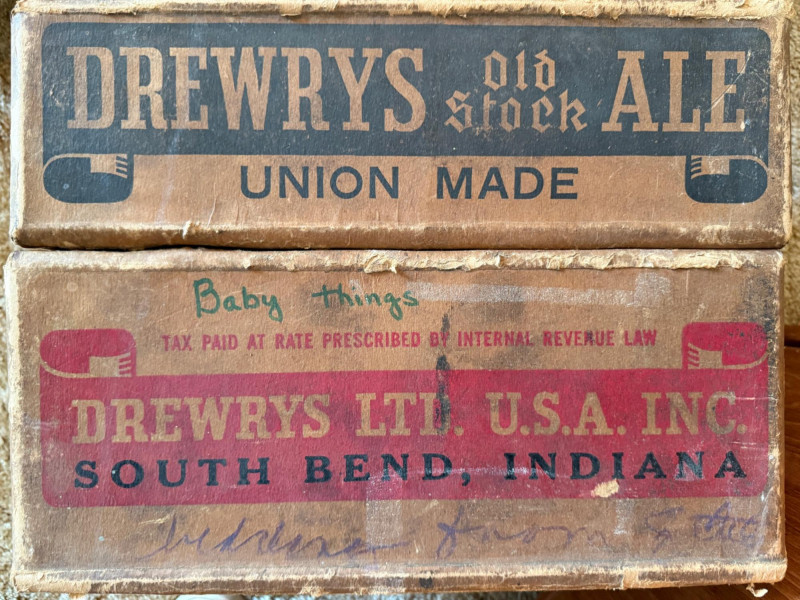 DREWRYS Old Stock ALE
UNION MADE
Baby things
TAX PAID AT RATE PRESCRIBED BY INTERNAL REVENUE LAW
DREWRYS LTD. U.S.A. INC.
SOUTH BEND, INDIANA